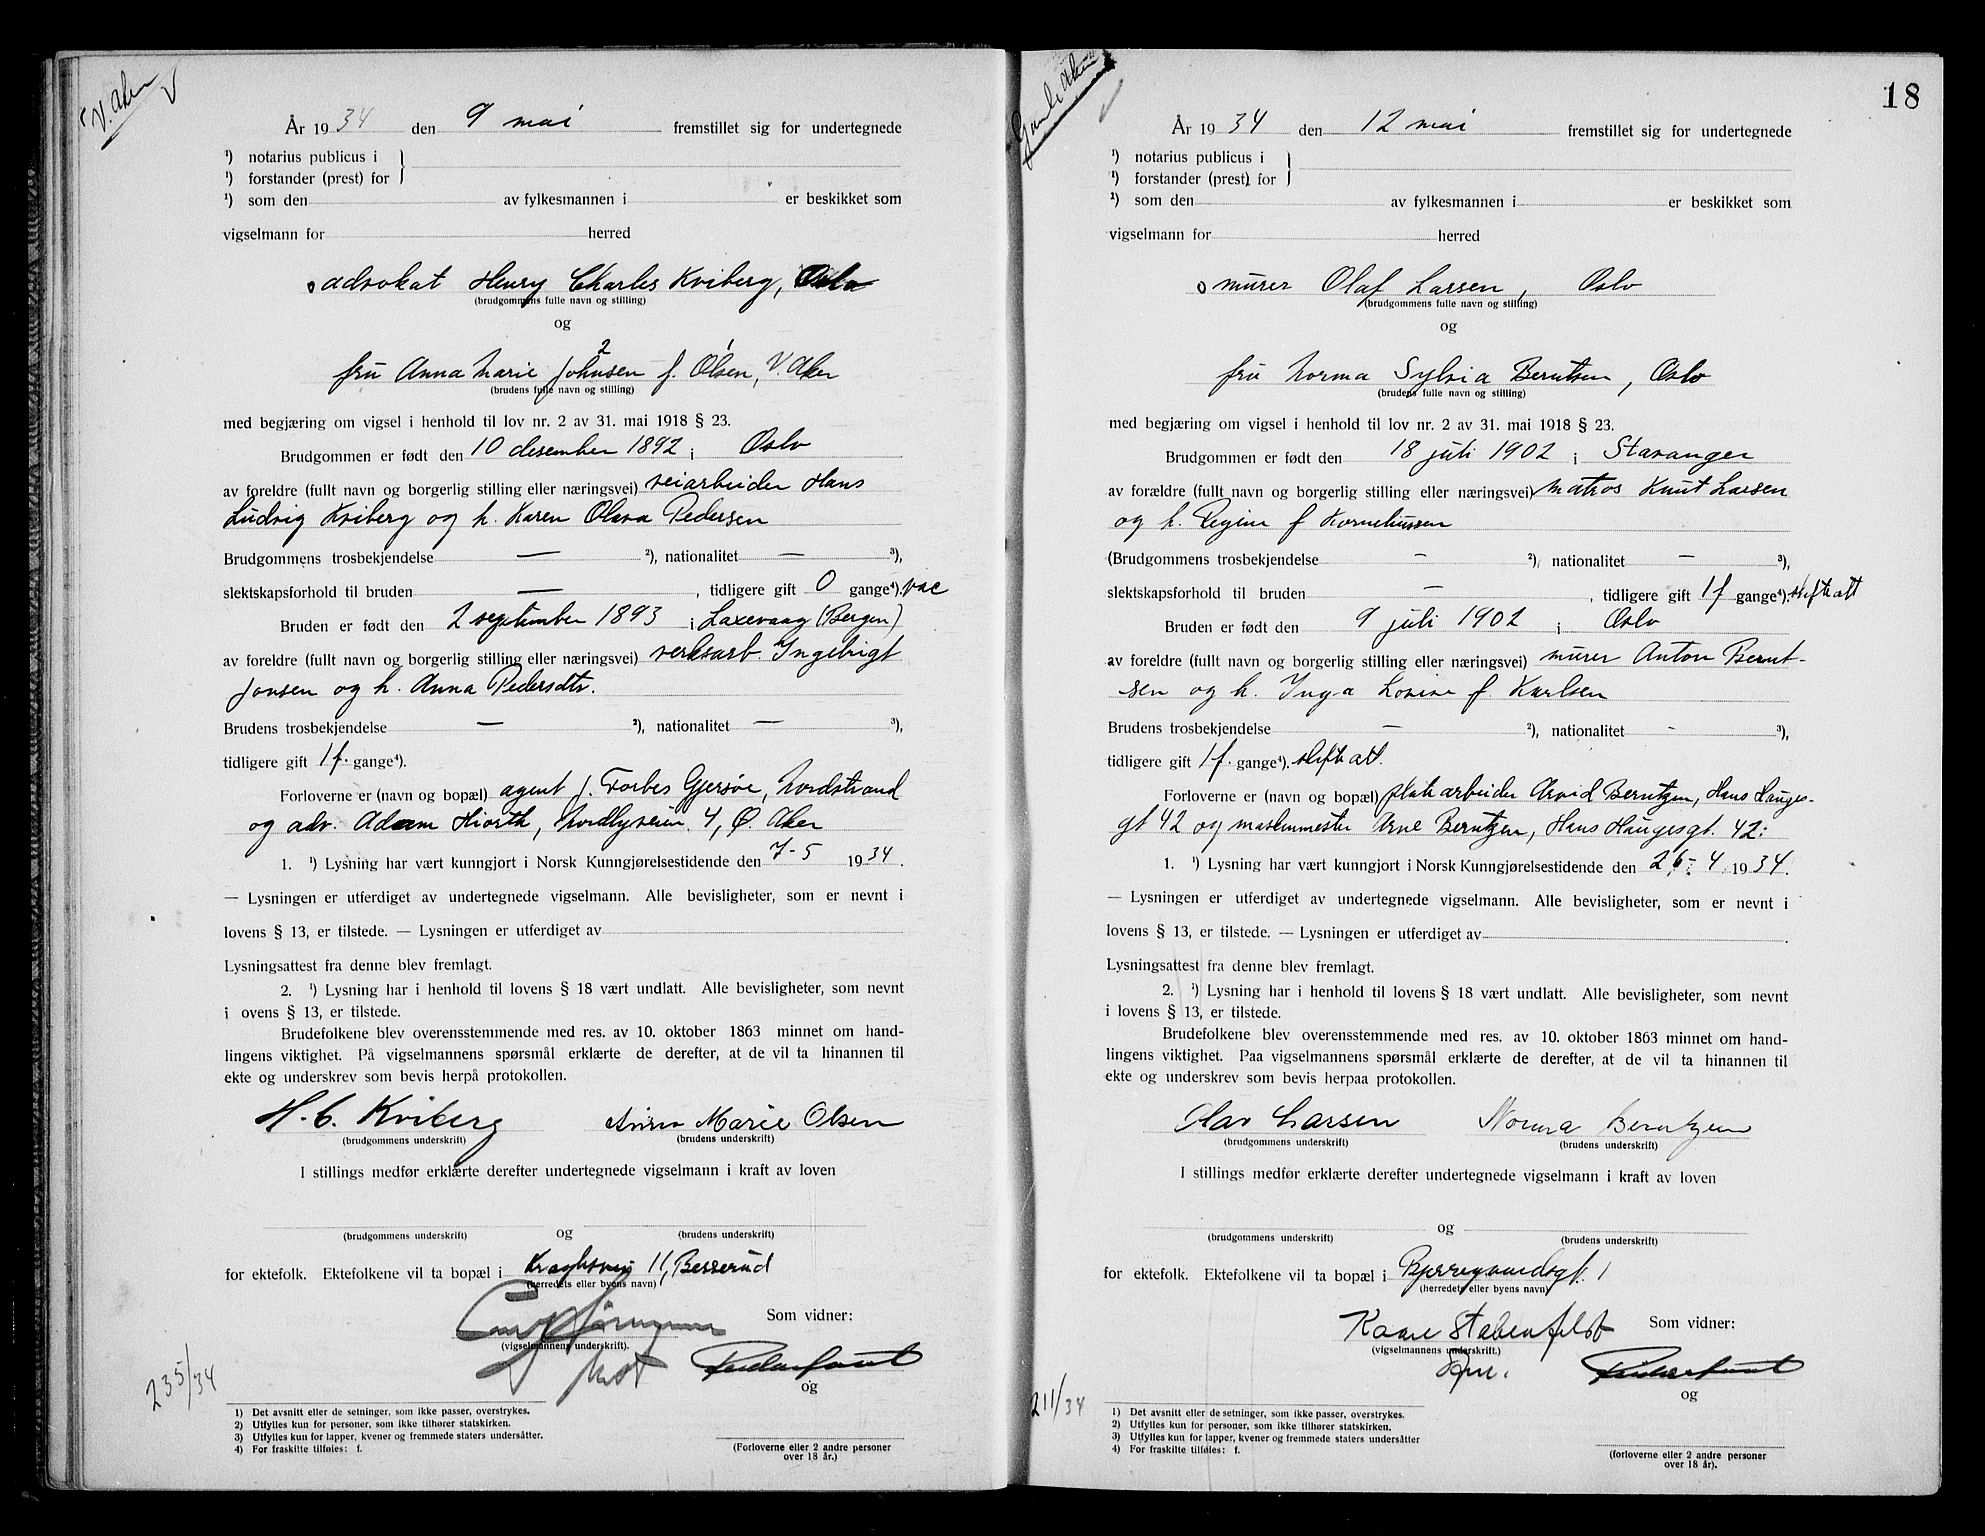 V. Aker
År 1934 den 9 mai fremstillet sig for undertegnede
¹) notarius publicus i
¹) forstander (prest) for
¹) som den av fylkesmannen i er beskikket som
vigselmann for herred
advokat Henry Charles Kviberg, Oslo
(brudgommens fulle navn og stilling)
og
2 1
fru Anna Marie Johnsen f. Olsen, V. Aker
(brudens fulle navn og stilling)
med begjæring om vigsel i henhold til lov nr. 2 av 31. mai 1918 § 23.
Brudgommen er født den 10 desember 1892 i Oslo
av foreldre (fullt navn og borgerlig stilling eller næringsvei) veiarbeider Hans
Ludvig Kviberg og h. Karen Olava Pedersen
Brudgommens trosbekjendelse — ²), nationalitet — ³),
slektskapsforhold til bruden — , tidligere gift 0 gange⁴). vac
Bruden er født den 2 september 1893 i Laxevaag (Bergen)
av foreldre (fullt navn og borgerlig stilling eller næringsvei) verksarb. Ingebrigt
Jonsen og h. Anna Pedersdtr.
Brudens trosbekjendelse — ²), nationalitet — ³),
tidligere gift 1 f. gange⁴).
Forloverne er (navn og bopæl) agent J. Forbes Gjersøe, Nordstrand
og adv. Adam Hiorth, Nordlyveien 4, Ø. Aker
1. ¹) Lysning har vært kunngjort i Norsk Kunngjørelsestidende den 7-5 1934.
— Lysningen er utferdiget av undertegnede vigselmann. Alle bevisligheter, som er nevnt i
lovens § 13, er tilstede. — Lysningen er utferdiget av
Lysningsattest fra denne blev fremlagt.
2. ¹) Lysning har i henhold til lovens § 18 vært undlatt. Alle bevisligheter, som nevnt
i ovens § 13, er tilstede.
Brudefolkene blev overensstemmende med res. av 10. oktober 1863 minnet om hand-
lingens viktighet. På vigselmannens spørsmål erklærte de derefter, at de vil ta hinannen til
ekte og underskrev som bevis herpå protokollen.
H. C. Kviberg Anna Marie Olsen
(brudgommens underskrift) (brudens underskrift)
I stillings medfør erklærte derefter undertegnede vigselmann i kraft av loven
og
(brudgommens underskrift) (brudens underskrift)
for ektefolk. Ektefolkene vil ta bopæl i Kraghsvei 11, Besserud
(herredets eller byens navn)
Som vidner:
(vigselmannens underskrift).
og
235/34
1) Det avsnitt eller de setninger, som ikke passer, overstrykes.
2) Utfylles kun for personer, som ikke tilhører statskirken.
3) Utfylles kun for lapper, kvener og fremmede staters undersåtter.
4) For fraskilte tilføles: f.
(Forloverne eller 2 andre personer
over 18 år.)
Gamle Aker
18
År 1934 den 12 mai fremstillet sig for undertegnede
¹) notarius publicus i
¹) forstander (prest) for
¹) som den av fylkesmannen i er beskikket som
vigselmann for herred
murer Olaf Larsen, Oslo
(brudgommens fulle navn og stilling)
og
fru Norma Sylvia Berntsen, Oslo
(brudens fulle navn og stilling)
med begjæring om vigsel i henhold til lov nr. 2 av 31. mai 1918 § 23.
Brudgommen er født den 18 juli 1902 i Stavanger
av forældre (fullt navn og borgerlig stilling eller næringsvei) matros Knut Larsen
og h. Regine f Korneliussen
(Brudgommens trosbekjendelse — ²), nationalitet — ³),
slektskapsforhold til bruden — , tidligere gift 1 f gange⁴). skifteatt
Bruden er født den 9 juli 1902 i Oslo
av foreldre (fullt navn og borgerlig stilling eller næringsvei) murer Anton Bernt-
sen og h. Inga Lovise f Karlsen
Brudens trosbekjendelse — ²), nationalitet - ³),
tidligere gift 1 f. gange⁴). skifteatt.
Forloverne er (navn og bopæl) platearbeider Arvid Berntzen, Hans Hauges-
gt 42 og maskinmester Arne Berntzen, Hans Haugesgt. 42.
1. ¹) Lysning har vært kunngjort i Norsk Kunngjørelsestidende den 26-4 1934.
— Lysningen er utferdiget av undertegnede vigselmann. Alle bevisligheter, som er nevnt i
lovens § 13, er tilstede. — Lysningen er utferdiget av
Lysningsattest fra denne blev fremlagt.
2. ¹) Lysning har i henhold til lovens § 18 vært undlatt. Alle bevisligheter, som nevnt
i lovens § 13, er tilstede.
Brudefolkene blev overensstemmende med res. av 10. oktober 1863 minnet om hand-
lingens viktighet. Paa vigselmannens spørsmål erklærte de derefter, at de vil ta hinannen til
ekte og underskrev som bevis herpaa protokollen.
Olav Larsen Norma Berntzen
(brudgommens underskrift) (brudens underskrift)
I stillings medfør erklærte derefter undertegnede vigselmann i kraft av loven
og
(brudgommens underskrift) (brudens underskrift)
for ektefolk. Ektefolkene vil ta bopæl i Bjerregaardsgt. 1
(herredets eller byens navn)
Kaare Stabenfeldt Som vidner:
(vigselmannens underskrift.)
og
211/34
1) Det avsnitt eller de setninger, som ikke passer, overstrykes.
2) Utfylles kun for personer, som ikke tilhører statskirken.
3) Utfylles kun for lapper, kvener og fremmede staters undersåtter
4) For fraskilte tilføles: f.
(forloverne eller 2 andre personer
over 18 år).